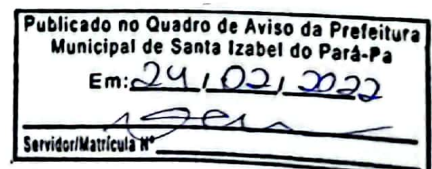 Publicado no Quadro de Aviso da Prefeitura
Municipal de Santa Izabel do Pará-Pa
Em: 24 / 02 / 2022
Servidor/Matrícula Nº